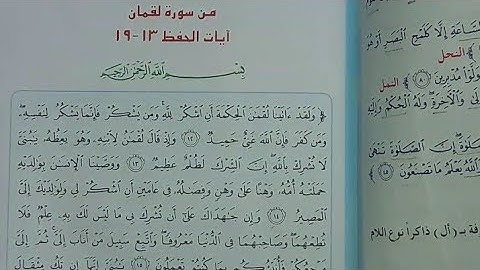 من سورة لقمان
آيات الحفظ ١٣-١٩
بِسْمِ اللَّهِ الرَّحْمَنِ الرَّحِيمِ
﴿ وَلَقَدْ ءَاتَيْنَا لُقْمَٰنَ ٱلْحِكْمَةَ أَنِ ٱشْكُرْ لِلَّهِۚ وَمَن يَشْكُرْ فَإِنَّمَا يَشْكُرُ لِنَفْسِهِۦۖ
وَمَن كَفَرَ فَإِنَّ ٱللَّهَ غَنِىٌّ حَمِيدٌ ﴿١٢﴾ وَإِذْ قَالَ لُقْمَٰنُ لِٱبْنِهِۦ وَهُوَ يَعِظُهُۥ يَٰبُنَىَّ
لَا تُشْرِكْ بِٱللَّهِۖ إِنَّ ٱلشِّرْكَ لَظُلْمٌ عَظِيمٌ ﴿١٣﴾ وَوَصَّيْنَا ٱلْإِنسَٰنَ بِوَٰلِدَيْهِ
حَمَلَتْهُ أُمُّهُۥ وَهْنًا عَلَىٰ وَهْنٍ وَفِصَٰلُهُۥ فِى عَامَيْنِ أَنِ ٱشْكُرْ لِى وَلِوَٰلِدَيْكَ إِلَىَّ
ٱلْمَصِيرُ ﴿١٤﴾ وَإِن جَٰهَدَاكَ عَلَىٰٓ أَن تُشْرِكَ بِى مَا لَيْسَ لَكَ بِهِۦ عِلْمٌ فَلَا
تُطِعْهُمَاۖ وَصَاحِبْهُمَا فِى ٱلدُّنْيَا مَعْرُوفًاۖ وَٱتَّبِعْ سَبِيلَ مَنْ أَنَابَ إِلَىَّۚ ثُمَّ إِلَىَّ
مَرْجِعُكُمْ فَأُنَبِّئُكُم بِمَا كُنتُمْ تَعْمَلُونَ ﴿١٥﴾ يَٰبُنَىَّ إِنَّهَآ إِن تَكُ مِثْقَالَ
ٱلسَّاعَةِ إِلَّا كَلَمْحِ ٱلْبَصَرِ أَوْ هُوَ
النحل
وَلَّوْا۟ مُدْبِرِينَ ﴿٨٠﴾ النمل
وَٱلْءَاخِرَةِۖ وَلَهُ ٱلْحُكْمُ وَإِلَيْهِ
ٱلصَّلَوٰةَۖ إِنَّ ٱلصَّلَوٰةَ تَنْهَىٰ
ٱللَّهُ يَعْلَمُ مَا تَصْنَعُونَ ﴿٤٥﴾
بـ (أل) ذاكراً نوع اللام